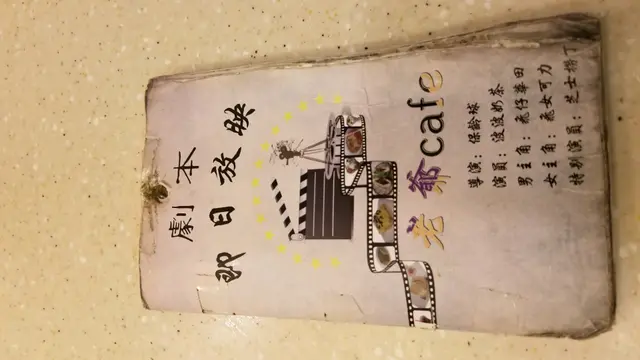 劇本
即日放映
老爺cafe
導演：保齡球
演員：波波奶茶
男主角：仔華田
女主角：女可力
特別演員：芝士撈丁